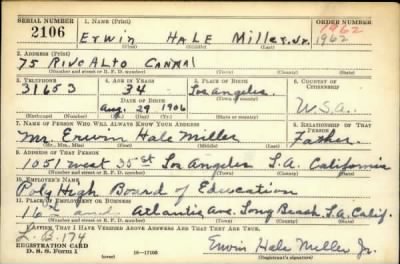 SERIAL NUMBER 1. NAME (Print) 1962
2106 Erwin HALE Miller, Jr. 1962
(First) (Middle) (Last)
2. ADDRESS (Print)
75 RIVO ALTO CANAL
(Number and street or R. F. D. number) (Town) (County) (State)
3. TELEPHONE 4. AGE IN YEARS 5. PLACE OF BIRTH 6. COUNTRY OF CITIZENSHIP
31653 34 Los Angeles
DATE OF BIRTH
Aug. 29 1906 U.S.A.
(Exchange) (Number) (Mo.) (Day) (Yr.) (State or country)
7. NAME OF PERSON WHO WILL ALWAYS KNOW YOUR ADDRESS 8. RELATIONSHIP OF THAT PERSON
Mr. Erwin Hale Miller Father
(Mr., Mrs., Miss) (First) (Middle) (Last)
9. ADDRESS OF THAT PERSON
1051 West 35 St Los Angeles L.A. California
(Number and street or R. F. D. number) (Town) (County) (State)
10. EMPLOYER'S NAME
Poly High Board of Education
11. PLACE OF EMPLOYMENT OR BUSINESS
16th and Atlantic Ave. Long Beach L.A. Calif.
(Number and street or R. F. D. number) (Town) (County) (State)
I AFFIRM THAT I HAVE VERIFIED ABOVE ANSWERS AND THAT THEY ARE TRUE.
L.B. 174
REGISTRATION CARD
D. S. S. Form 1 (over) 16—17105 Erwin Hale Miller Jr.
(Registrant's signature)